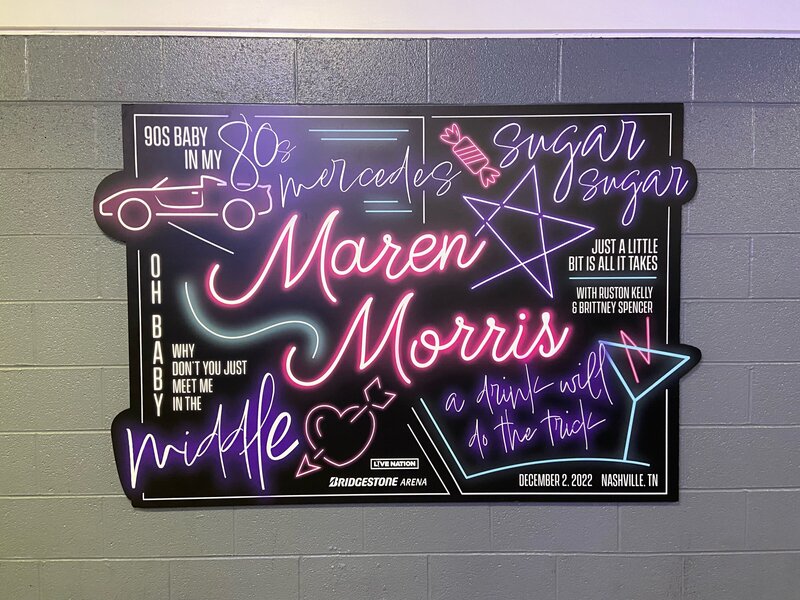 90S BABY
IN MY
80s
mercedes
sugar
sugar
Maren
Morris
JUST A LITTLE
BIT IS ALL IT TAKES
WITH RUSTON KELLY
& BRITTNEY SPENCER
OH BABY
WHY
DON'T YOU JUST
MEET ME
IN THE
middle
a drink will
do the trick
LIVE NATION
BRIDGESTONE ARENA
DECEMBER 2, 2022 NASHVILLE, TN